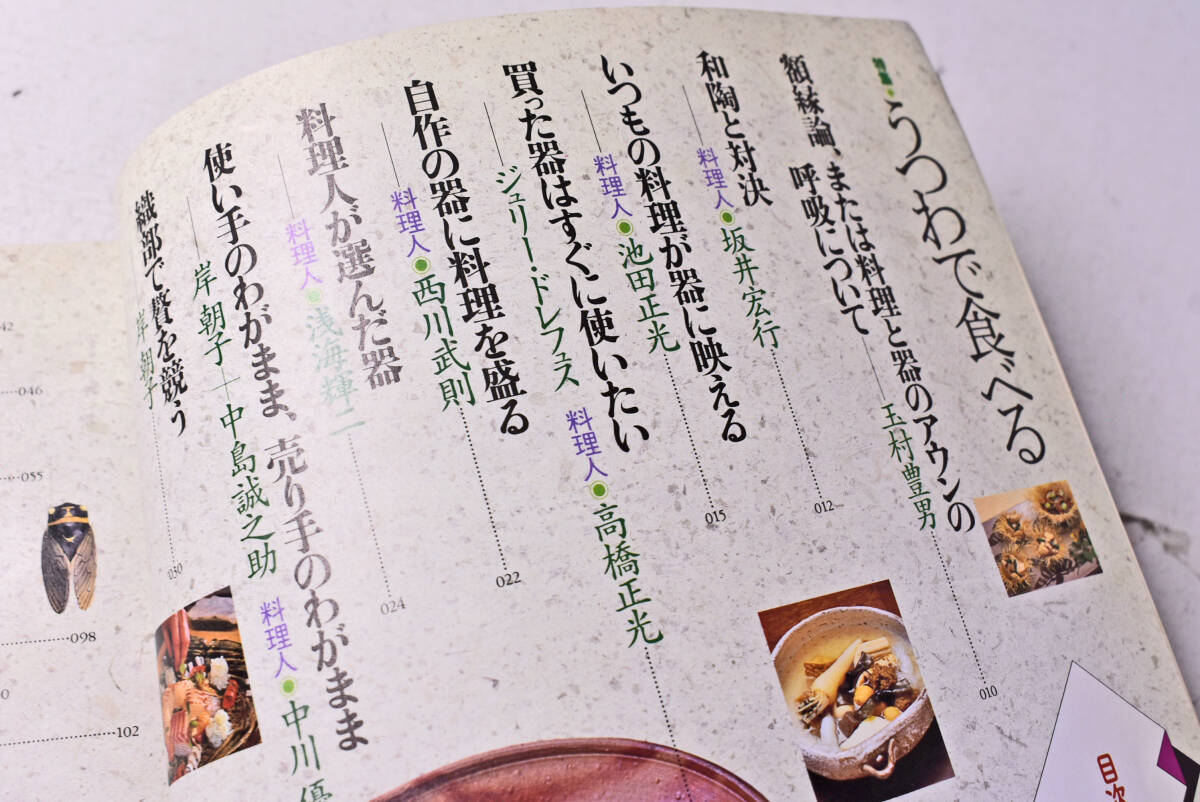 特集・うつわで食べる
額縁論、または料理と器のアウンの
呼吸について——玉村豊男
010
和陶と対決
——料理人●坂井宏行
012
いつもの料理が器に映える
——料理人●池田正光
015
買った器はすぐに使いたい
——ジェリー・ドレフュス 料理人●高橋正光
自作の器に料理を盛る
——料理人●西川武則
022
料理人が選んだ器
——料理人●浅海輝二
024
使い手のわがまま、売り手のわがまま
——岸 朝子——中島誠之助 料理人●中川優
織部で贅を競う
岸 朝子
030
目次
42
046
055
098
0
102